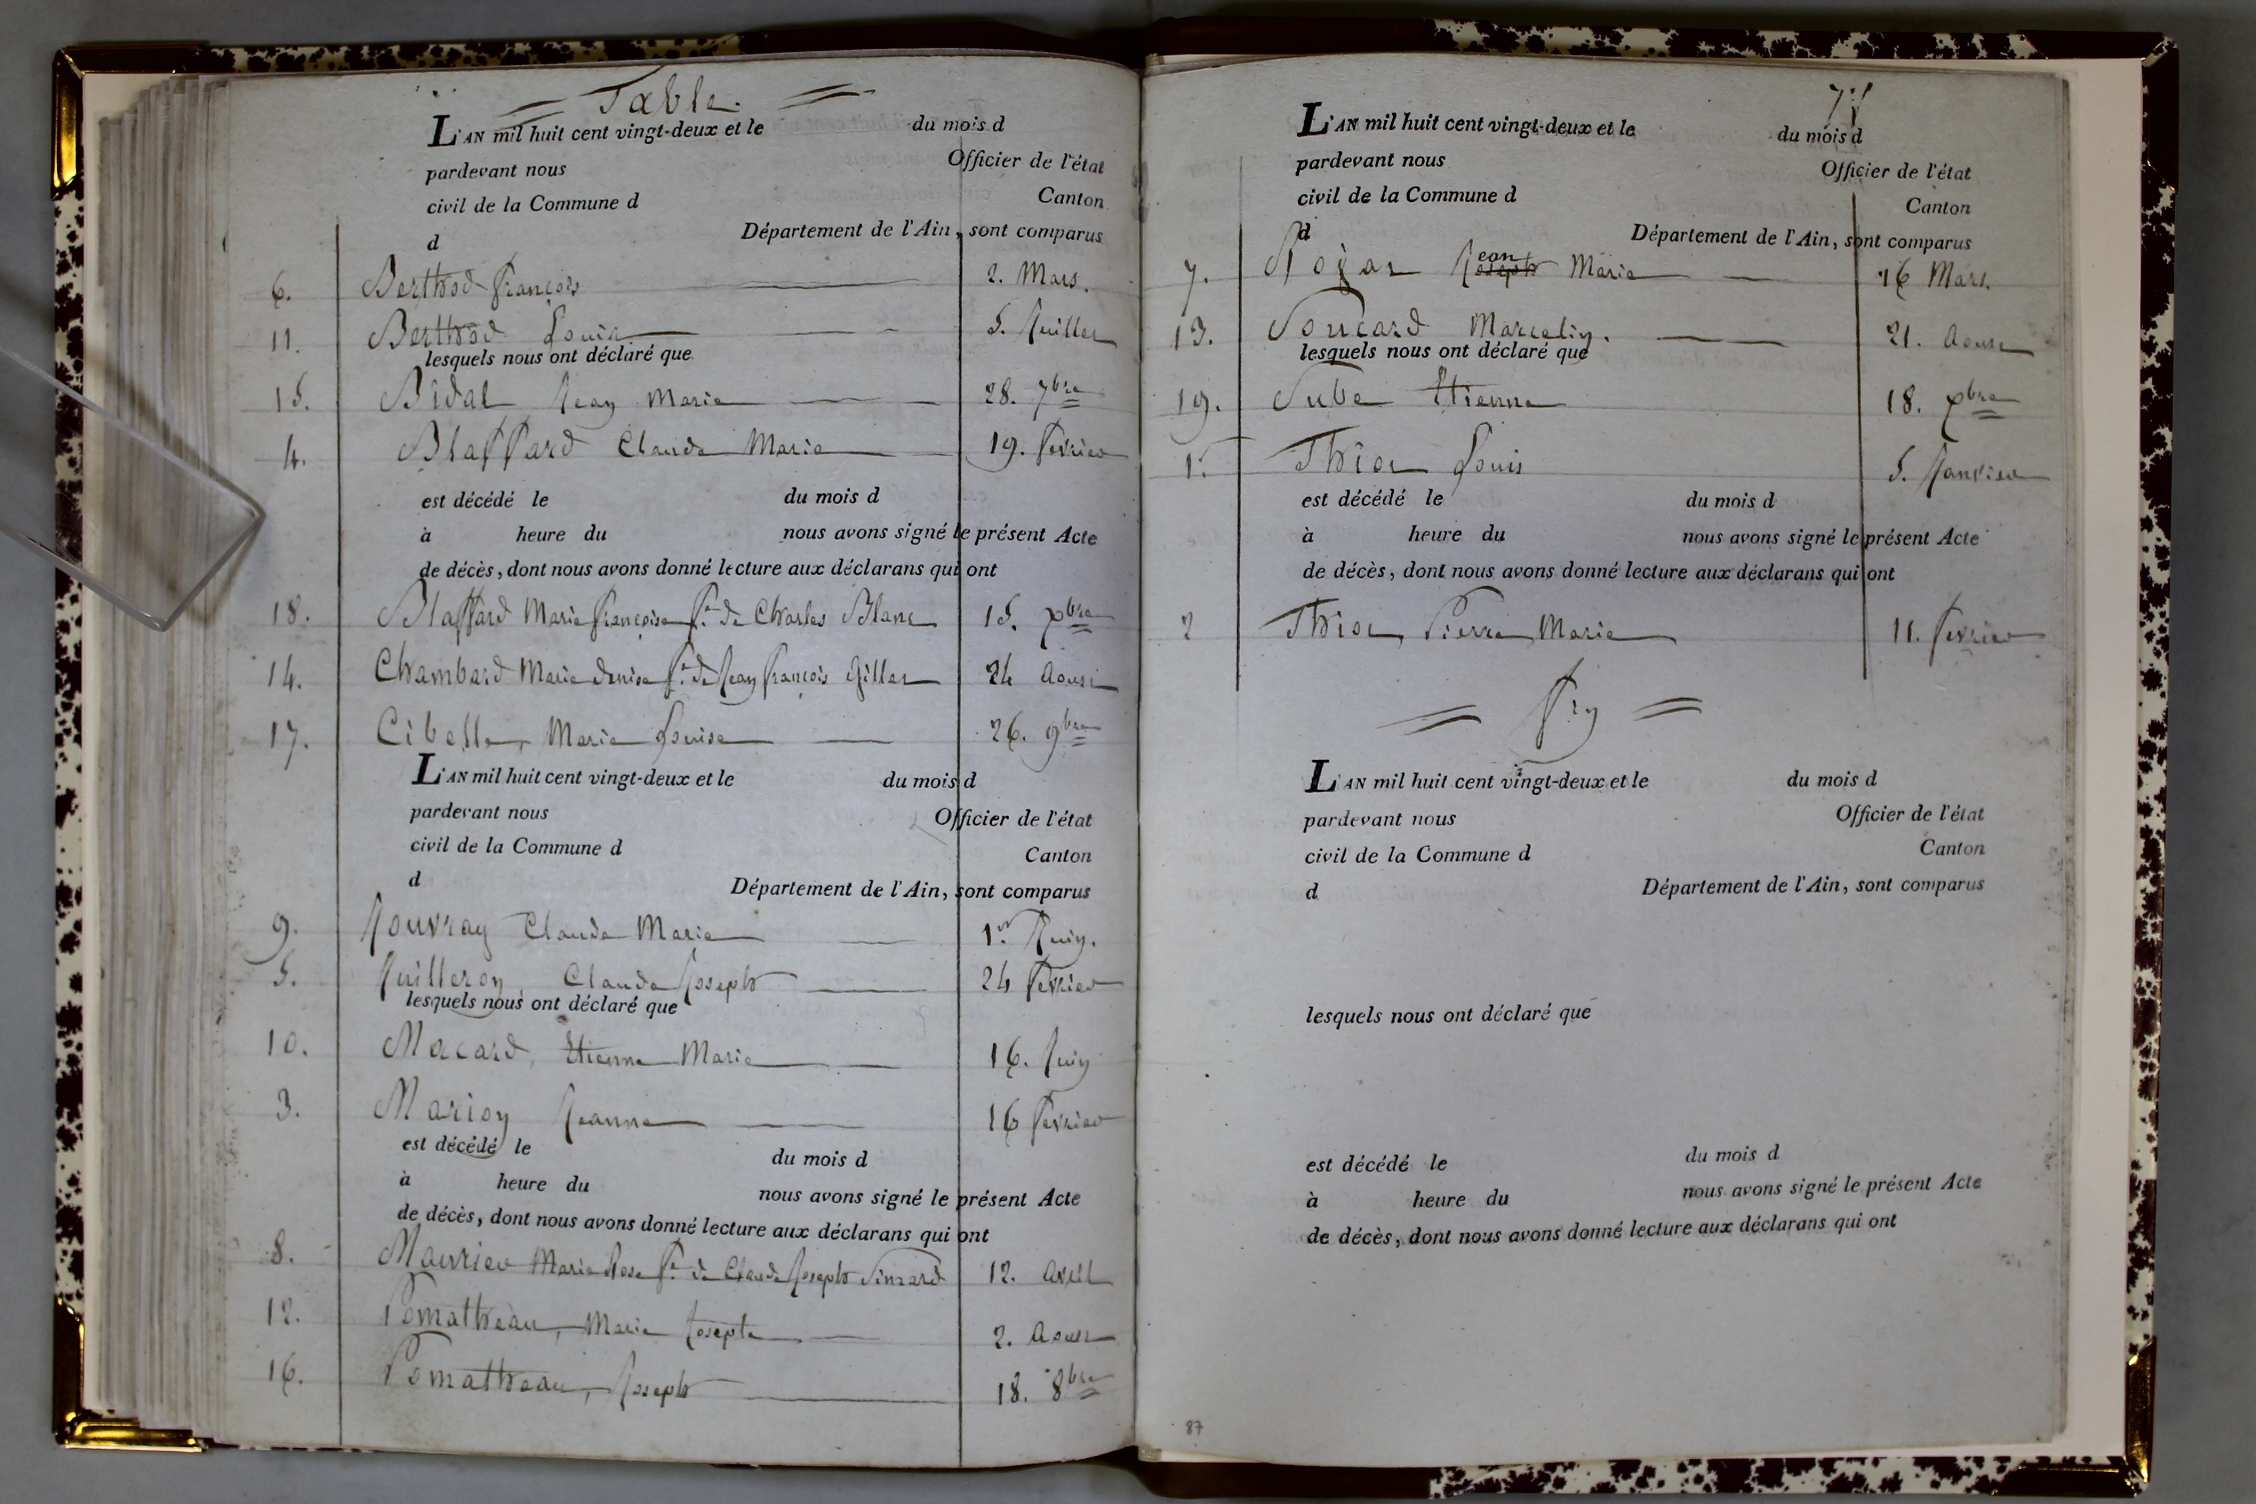 Table
L'AN mil huit cent vingt-deux et le du mois d
pardevant nous Officier de l'état
civil de la Commune d Canton
d Département de l'Ain, sont comparus
6. Berthod françois 2. Mars.
11. Berthod Louis 5. Juillet
lesquels nous ont déclaré que
15. Bidal Jean Marie 28. 7bre
4. Blaffard Claude Marie 19. fevrier
est décédé le du mois d
à heure du nous avons signé le présent Acte
de décès, dont nous avons donné lecture aux déclarans qui ont
18. Blaffard Marie françoise fe. de Charles Blanc 15. Xbre
14. Chambard Marie denise fe. de Jean françois Gillet 24 Aoust
17. Cibelle, Marie Louise 26. 9bre
L'AN mil huit cent vingt-deux et le du mois d
pardevant nous Officier de l'état
civil de la Commune d Canton
d Département de l'Ain, sont comparus
9. Jouvray Claude Marie 1er. Juin.
5. Juilleron, Claude Joseph 24 fevrier
lesquels nous ont déclaré que
10. Macard, Etienne Marie 16. Juin
3. Marion Jeanne 16 fevrier
est décédé le du mois d
à heure du nous avons signé le présent Acte
de décès, dont nous avons donné lecture aux déclarans qui ont
8. Maurier Marie Rose fe. de Claude Joseph 12. avril
12. Pomatheau, Marie Josephe 2. Aoust
16. Pomatheau, Joseph 18. 8bre
L'AN mil huit cent vingt-deux et le du mois d
pardevant nous Officier de l'état
civil de la Commune d Canton
d Département de l'Ain, sont comparus
7. Jean Joseph Marie 16 Mars.
13. Marcelin. 21. Aoust
lesquels nous ont déclaré que
19. Sube Etienne 18. Xbre
1. Louis 5. Janvier
est décédé le du mois d
à heure du nous avons signé le présent Acte
de décès, dont nous avons donné lecture aux déclarans qui ont
2 Pierre Marie 11. fevrier
fin
L'AN mil huit cent vingt-deux et le du mois d
pardevant nous Officier de l'état
civil de la Commune d Canton
d Département de l'Ain, sont comparus
lesquels nous ont déclaré que
est décédé le du mois d
à heure du nous avons signé le présent Acte
de décès, dont nous avons donné lecture aux déclarans qui ont
87